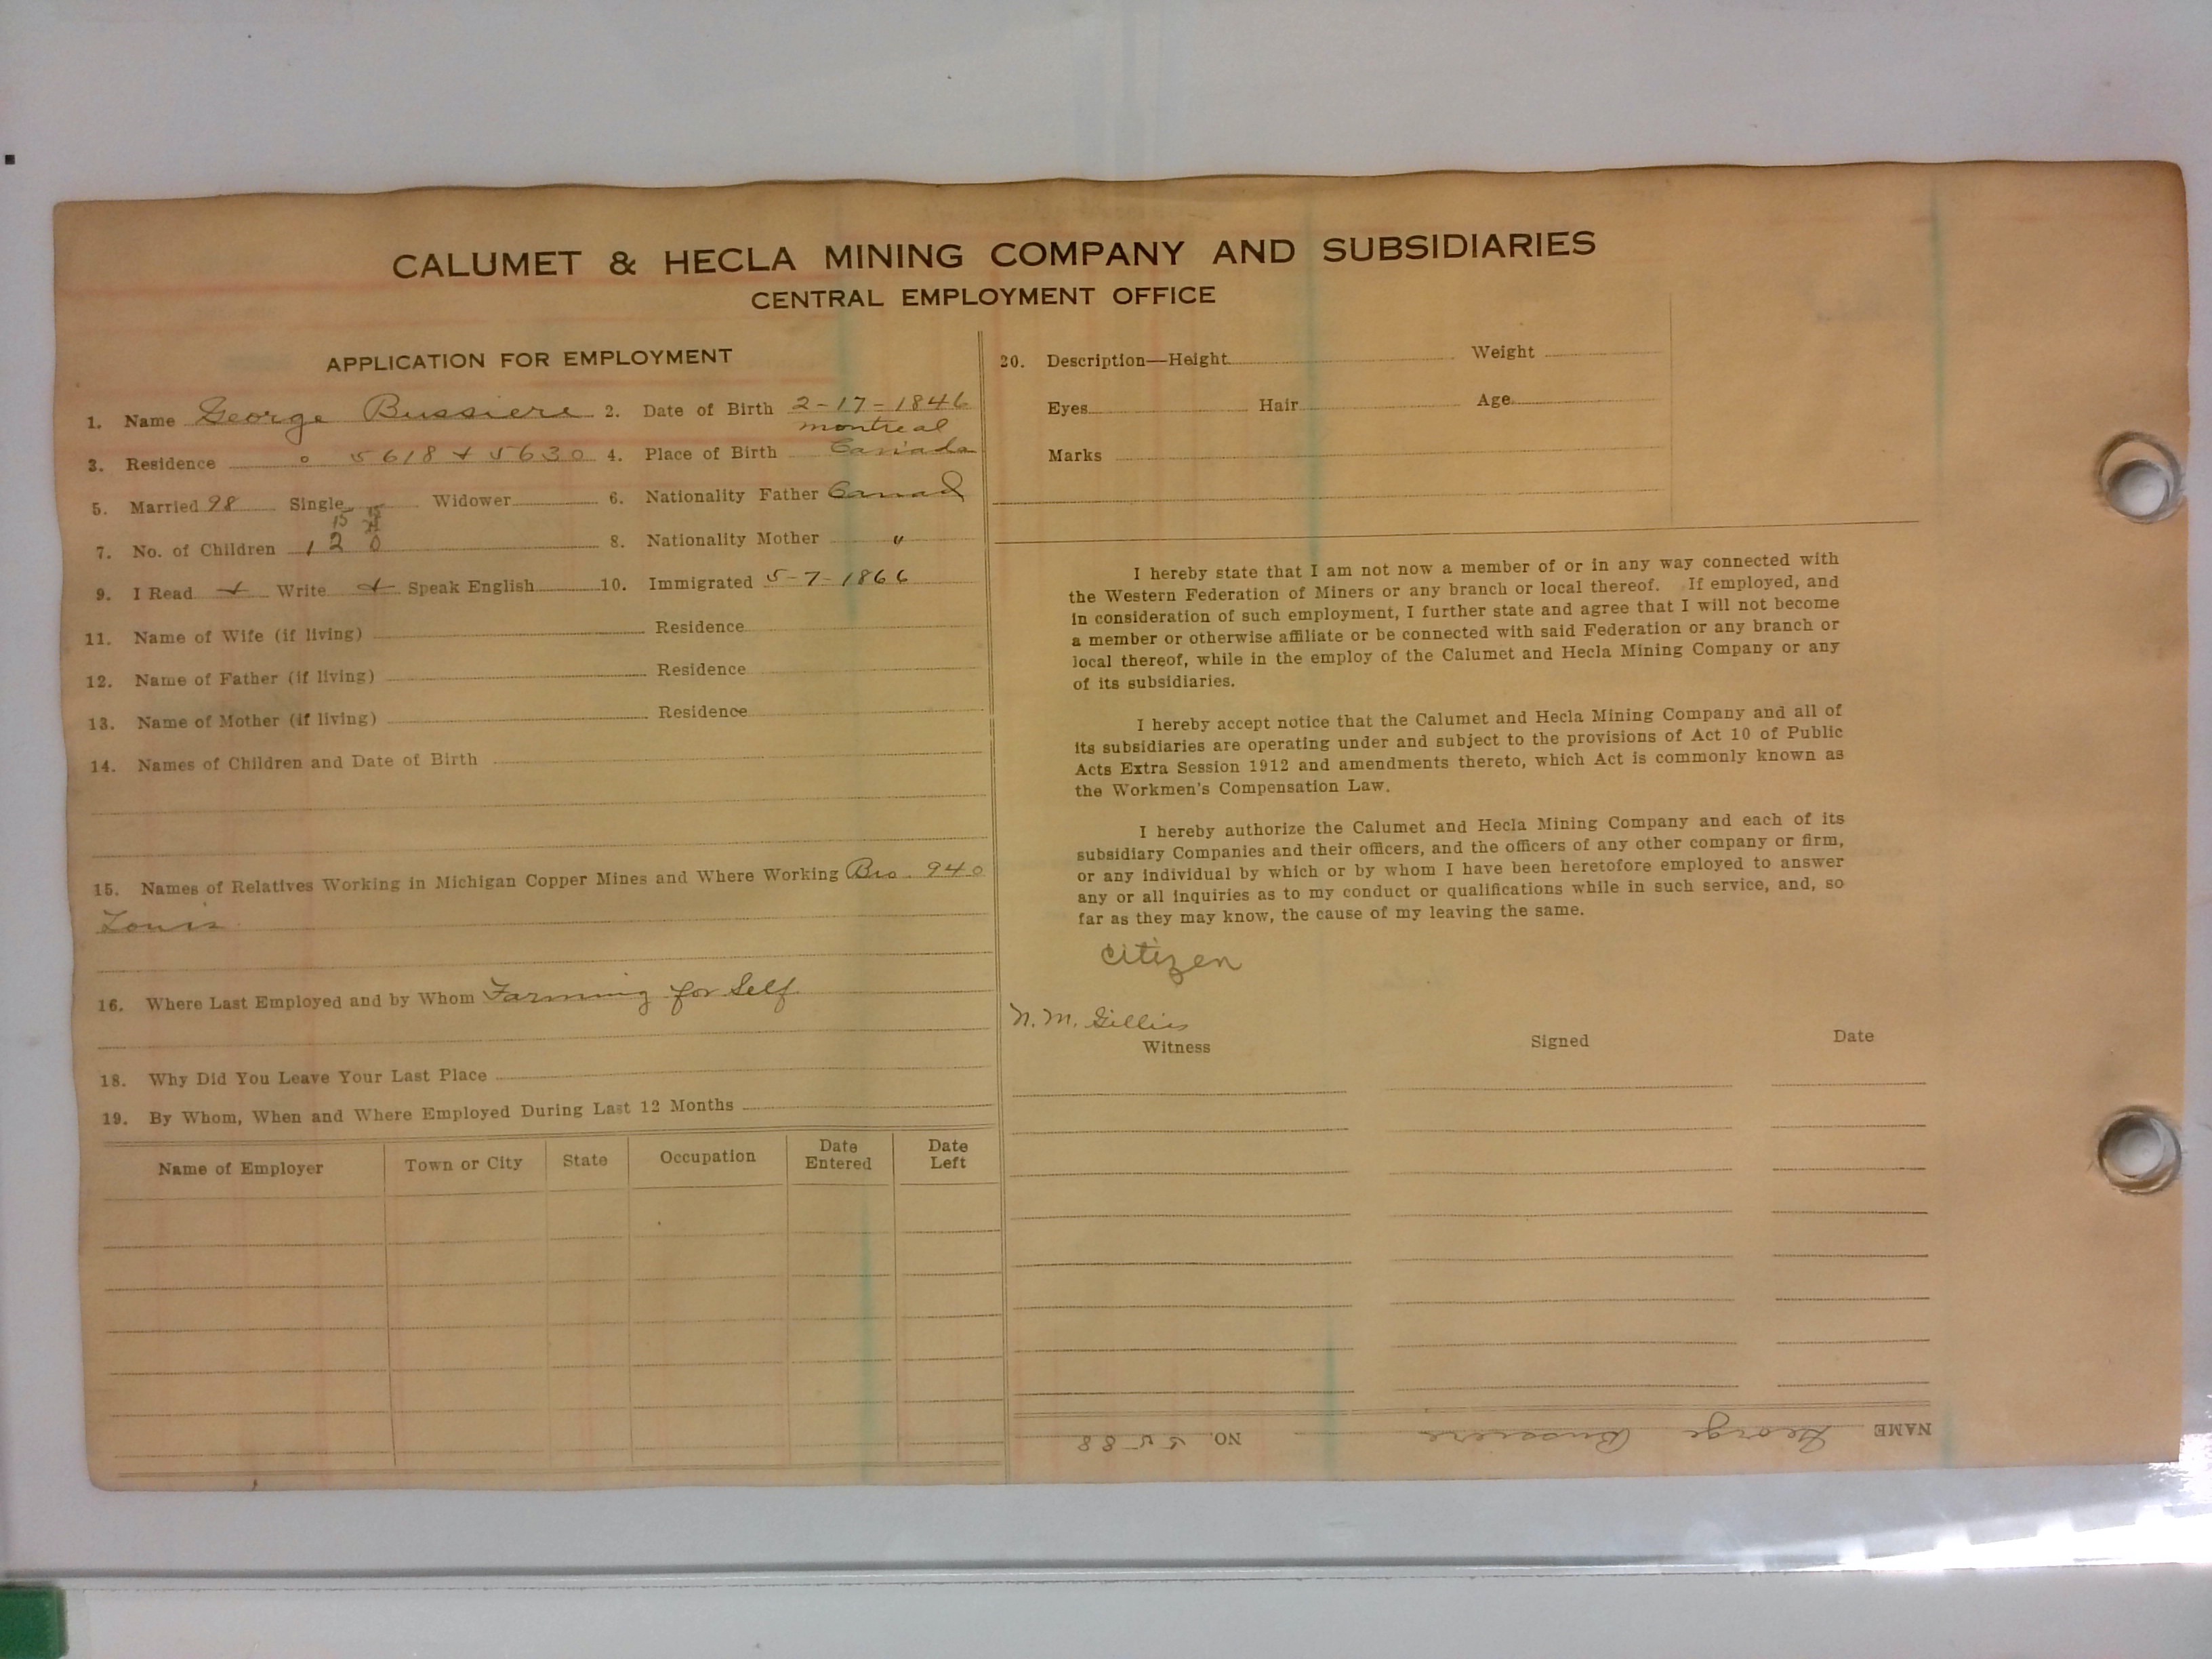 CALUMET & HECLA MINING COMPANY AND SUBSIDIARIES
CENTRAL EMPLOYMENT OFFICE
APPLICATION FOR EMPLOYMENT
1. Name George Bussiere 2. Date of Birth 2-17-1846
Montreal
3. Residence 5618 + 5630 4. Place of Birth Canada
5. Married 98 Single Widower 6. Nationality Father Canad
15
7. No. of Children 1 2 0 8. Nationality Mother "
9. I Read + Write + Speak English 10. Immigrated 5-7-1866
11. Name of Wife (if living) Residence
12. Name of Father (if living) Residence
13. Name of Mother (if living) Residence
14. Names of Children and Date of Birth
15. Names of Relatives Working in Michigan Copper Mines and Where Working Bro. 940
Louis
16. Where Last Employed and by Whom Farming for Self
18. Why Did You Leave Your Last Place
19. By Whom, When and Where Employed During Last 12 Months
Name of Employer Town or City State Occupation Date Entered Date Left
20. Description—Height Weight
Eyes Hair Age
Marks
I hereby state that I am not now a member of or in any way connected with
the Western Federation of Miners or any branch or local thereof. If employed, and
in consideration of such employment, I further state and agree that I will not become
a member or otherwise affiliate or be connected with said Federation or any branch or
local thereof, while in the employ of the Calumet and Hecla Mining Company or any
of its subsidiaries.
I hereby accept notice that the Calumet and Hecla Mining Company and all of
its subsidiaries are operating under and subject to the provisions of Act 10 of Public
Acts Extra Session 1912 and amendments thereto, which Act is commonly known as
the Workmen's Compensation Law.
I hereby authorize the Calumet and Hecla Mining Company and each of its
subsidiary Companies and their officers, and the officers of any other company or firm,
or any individual by which or by whom I have been heretofore employed to answer
any or all inquiries as to my conduct or qualifications while in such service, and, so
far as they may know, the cause of my leaving the same.
Citizen
N. M. Gillies
Witness Signed Date
NAME George Bussiere NO. 5588